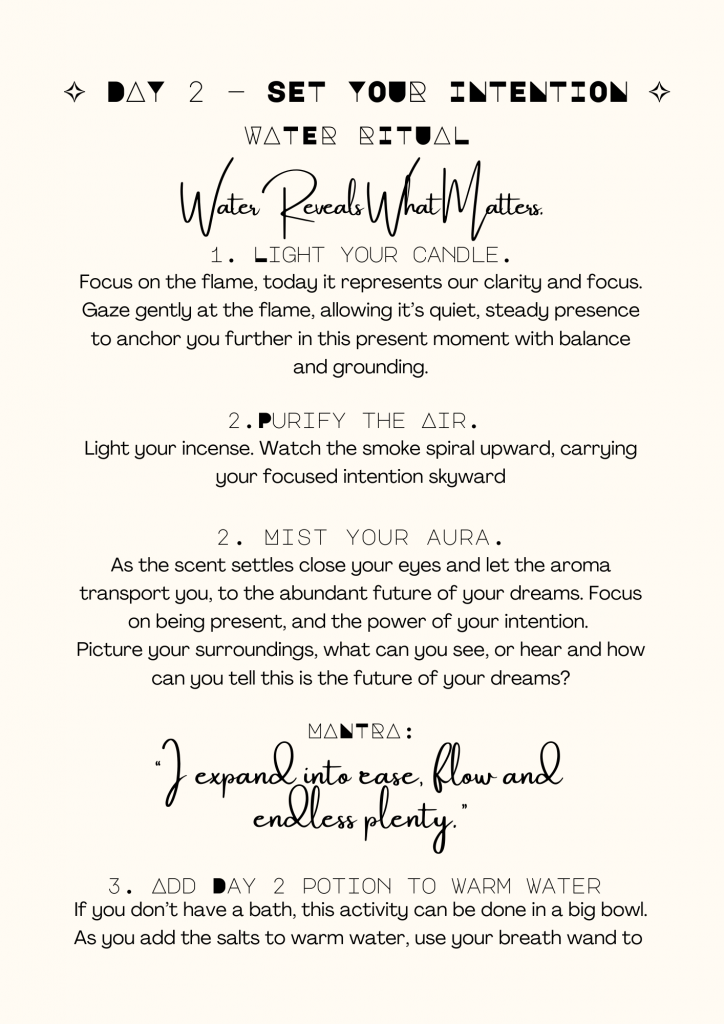 ✧ DAY 2 – SET YOUR INTENTION ✧
WATER RITUAL
Water Reveals What Matters.
1. LIGHT YOUR CANDLE.
Focus on the flame, today it represents our clarity and focus.
Gaze gently at the flame, allowing it's quiet, steady presence
to anchor you further in this present moment with balance
and grounding.
2.PURIFY THE AIR.
Light your incense. Watch the smoke spiral upward, carrying
your focused intention skyward
2. MIST YOUR AURA.
As the scent settles close your eyes and let the aroma
transport you, to the abundant future of your dreams. Focus
on being present, and the power of your intention.
Picture your surroundings, what can you see, or hear and how
can you tell this is the future of your dreams?
MANTRA:
“I expand into ease, flow and
endless plenty.”
3. ADD DAY 2 POTION TO WARM WATER
If you don't have a bath, this activity can be done in a big bowl.
As you add the salts to warm water, use your breath wand to